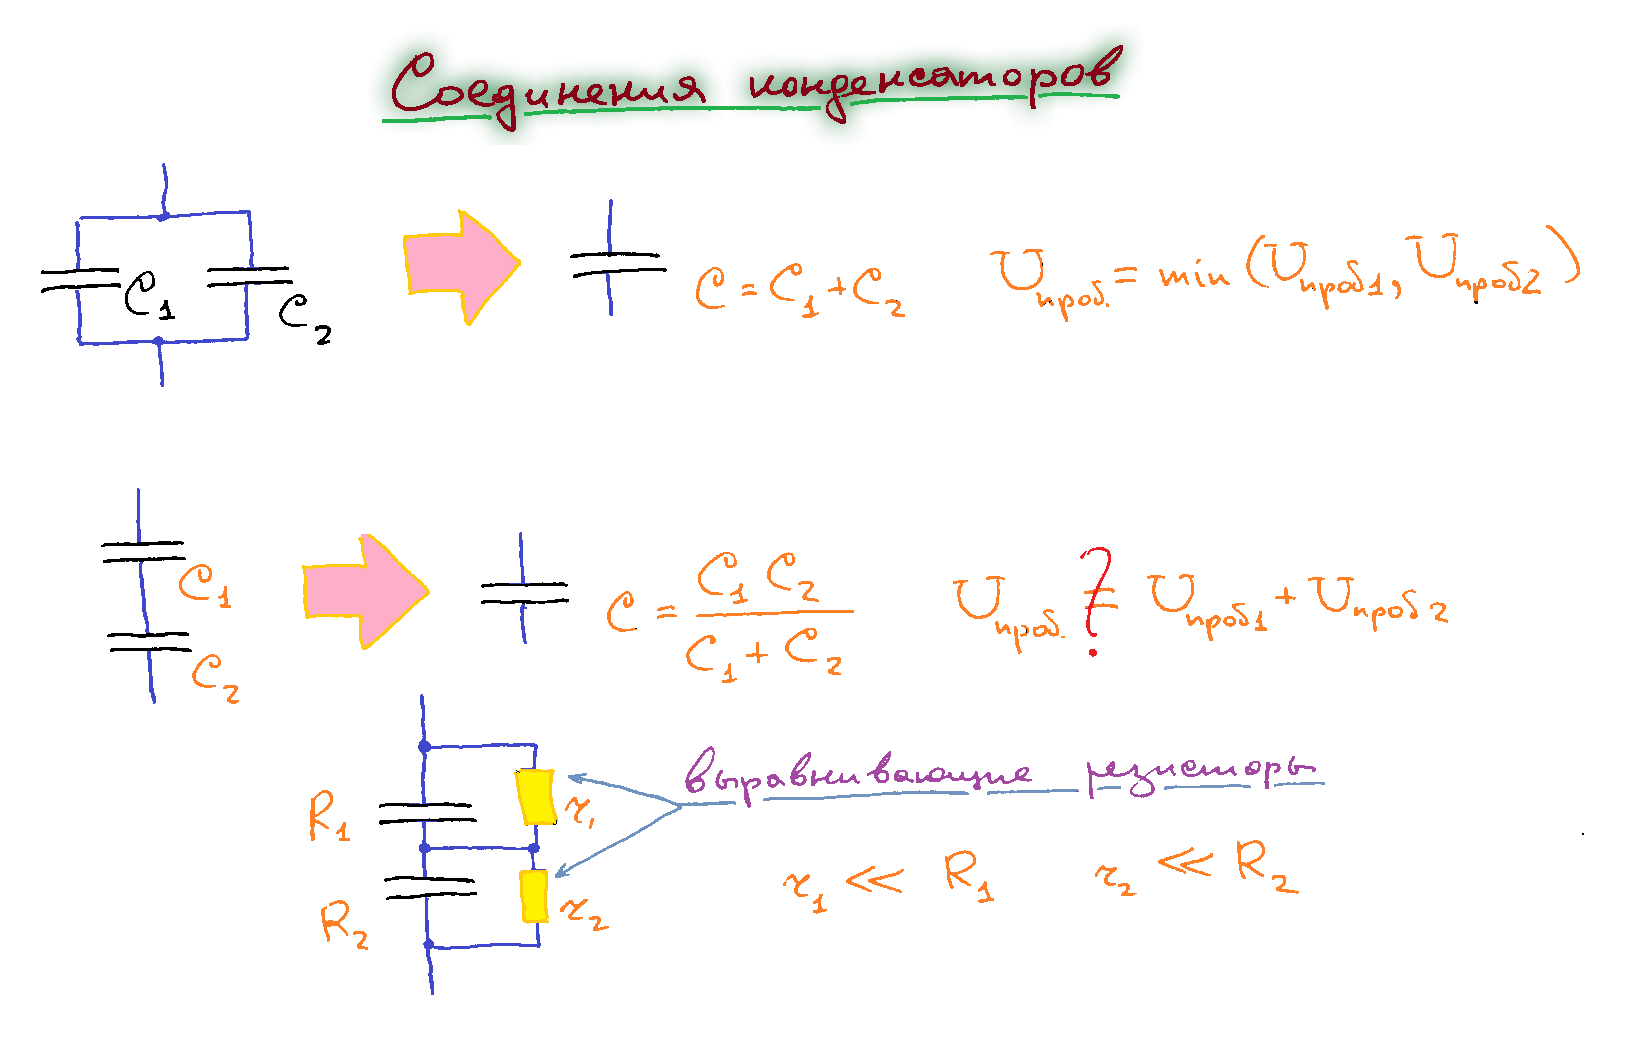 Соединения конденсаторов
C₁ C₂ C = C₁ + C₂ Uпроб. = min (Uпроб1, Uпроб2)
C₁ C₂ C = C₁ C₂ / C₁ + C₂ Uпроб. =? Uпроб1 + Uпроб2
выравнивающие резисторы
R₁ r₁
r₁ << R₁ r₂ << R₂
R₂ r₂